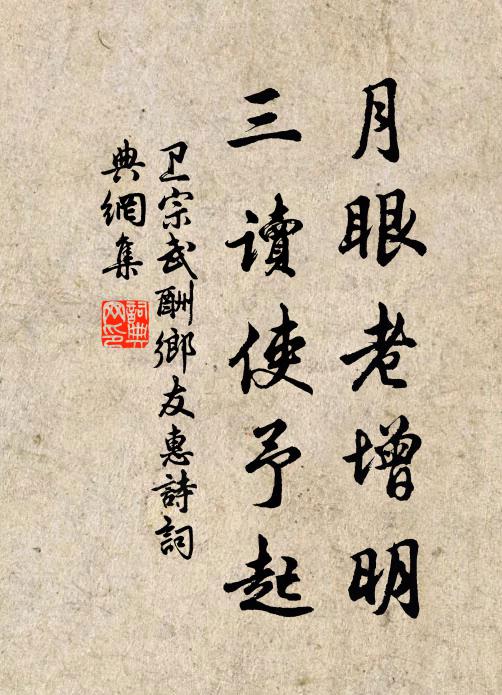 月眼老增明
三讀使予起
卫宗武酬鄉友惠詩詞
典網集
詞典网印